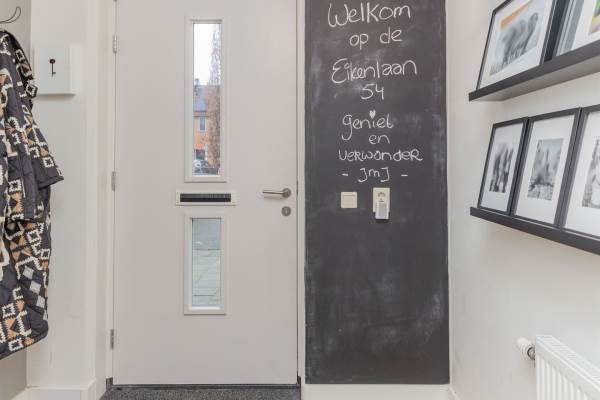 Welkom
op de
Eikenlaan
54
geniet
en
verwonder
- JMJ -